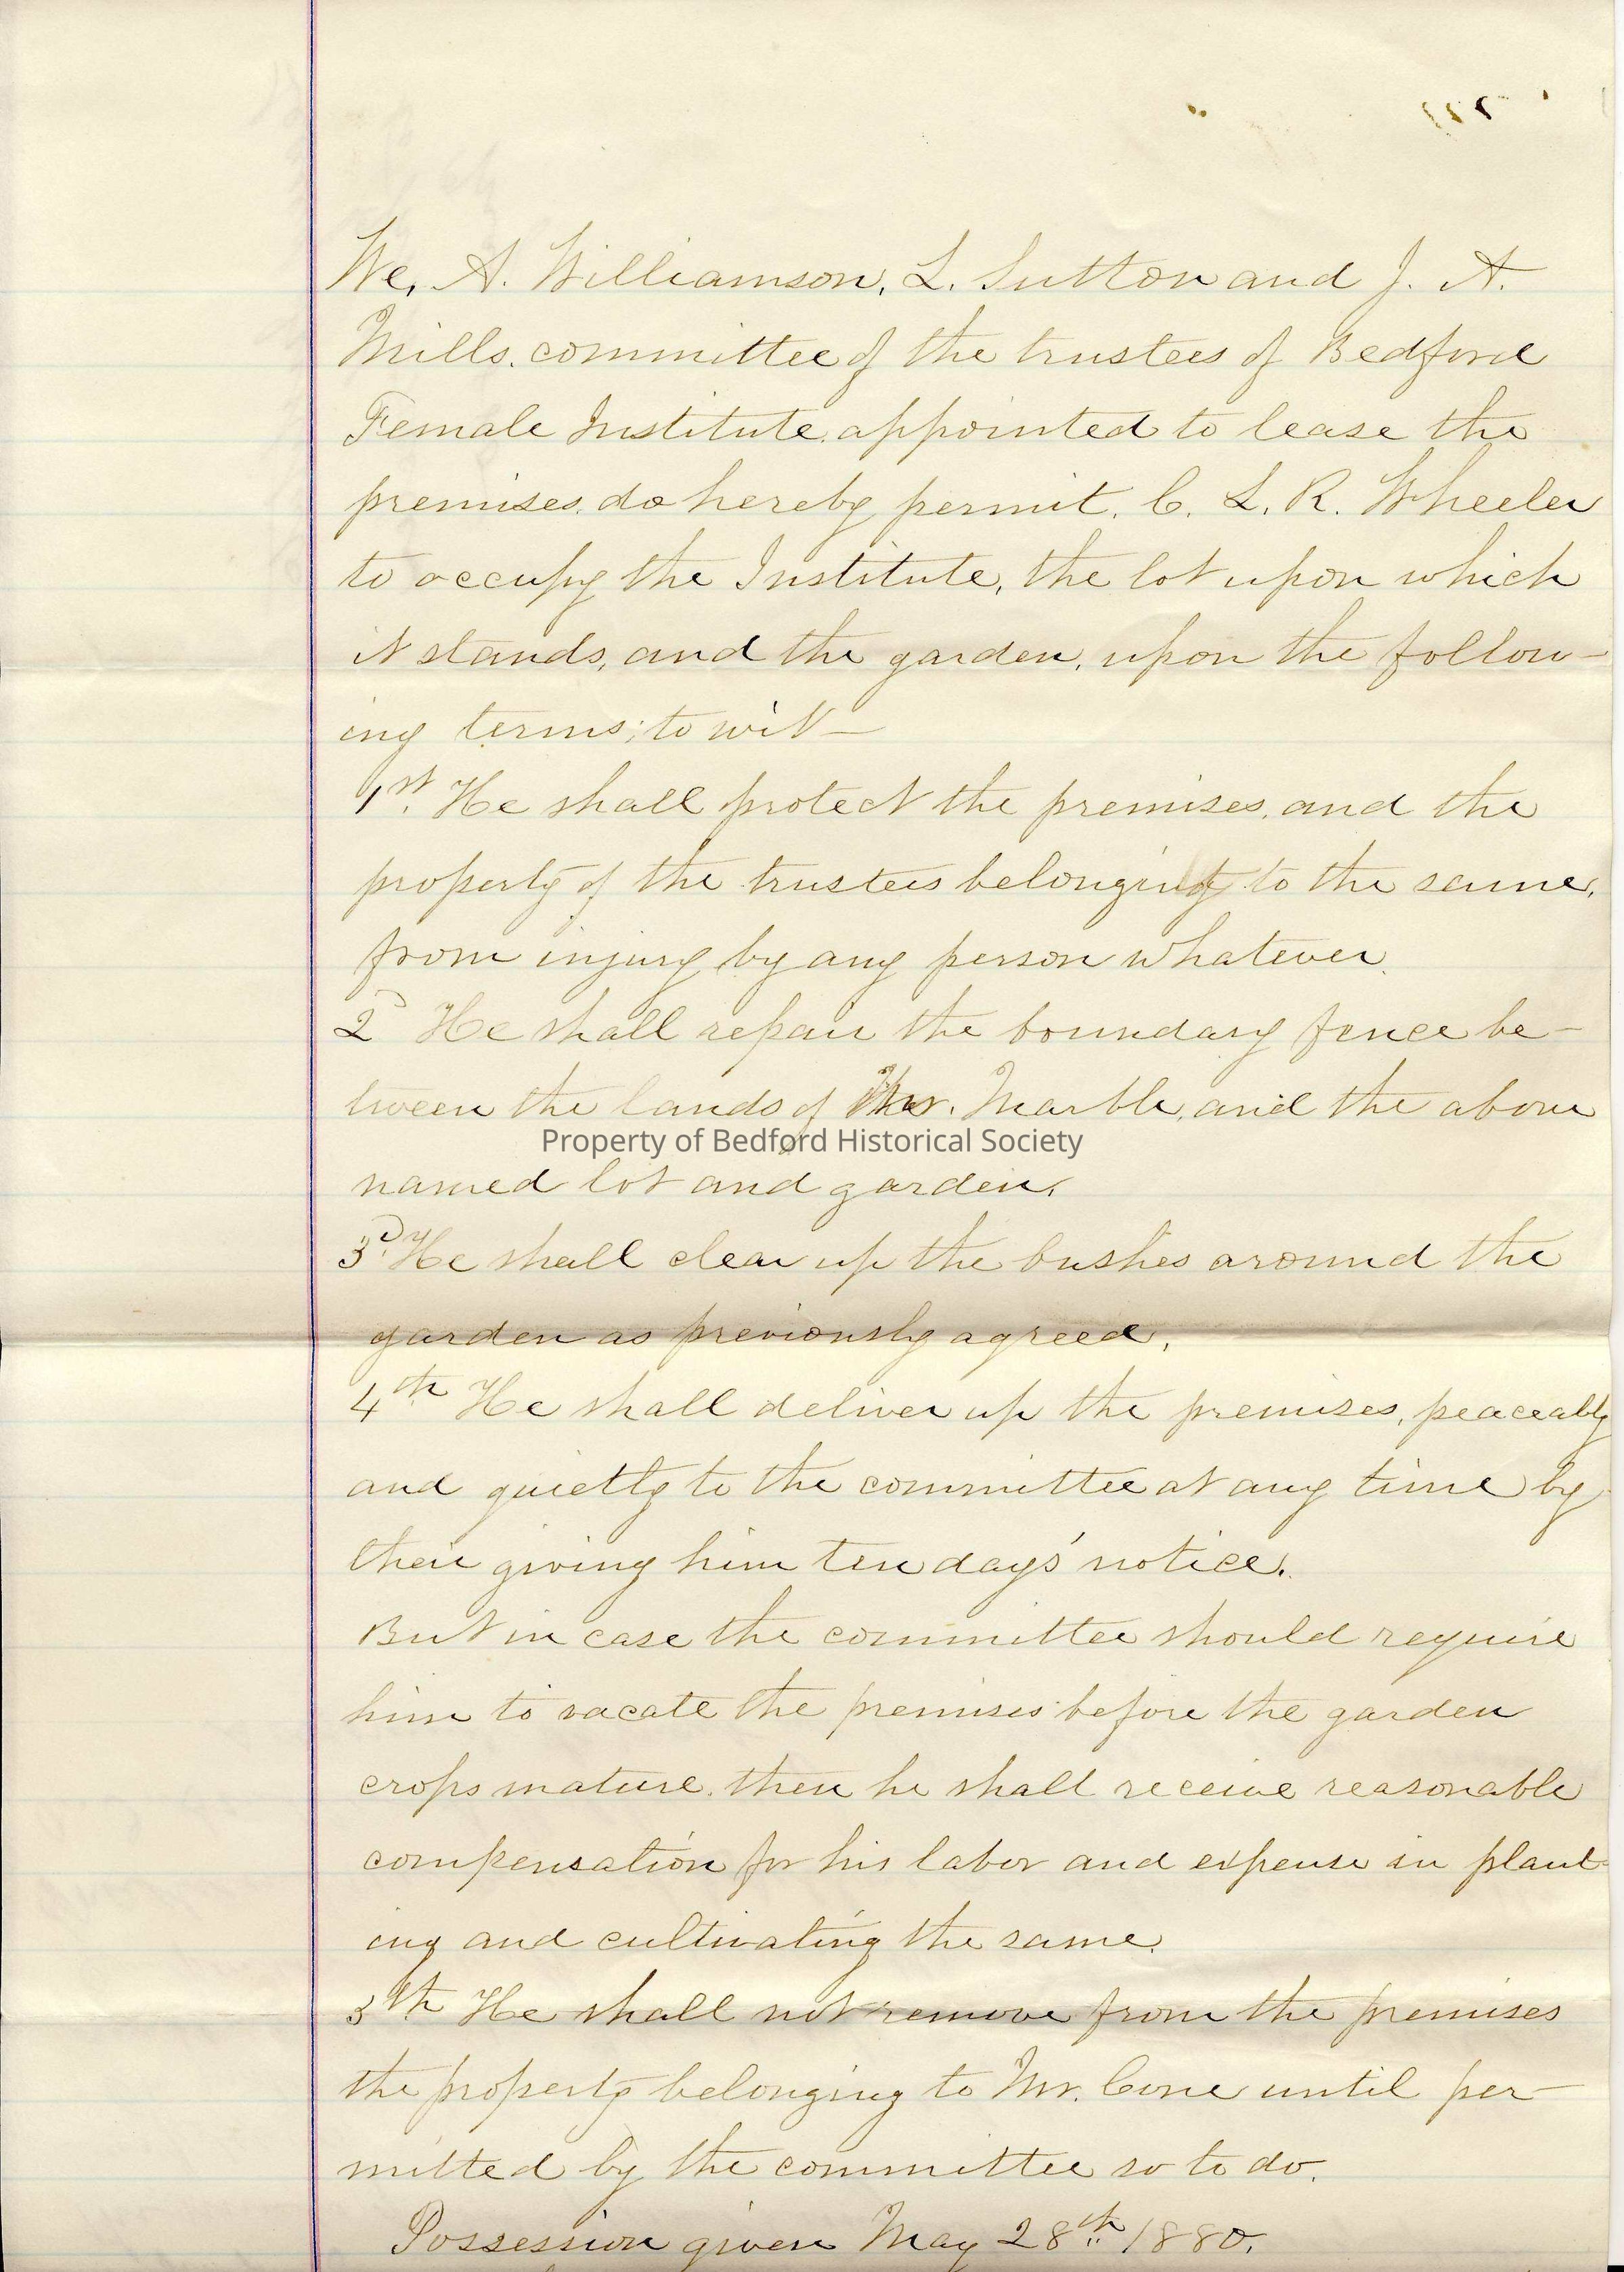 We, A. Williamson, L. Sutton and J. A.
Mills, committee of the trustees of Bedford
Female Institute, appointed to lease the
premises, do hereby permit, C. L. R. Wheeler
to occupy the Institute, the lot upon which
it stands, and the garden, upon the follow-
ing terms; to wit—
1st. He shall protect the premises, and the
property of the trustees belonging to the same,
from injury by any person whatever.
2d He shall repair the boundary fence be-
tween the lands of Mr. Marble, and the above
Property of Bedford Historical Society
named lot and garden.
3d. He shall clear up the bushes around the
garden as previously agreed.
4th He shall deliver up the premises, peaceably
and quietly to the committee at any time by
their giving him ten days' notice.
But in case the committee should require
him to vacate the premises before the garden
crops mature, then he shall receive reasonable
compensation for his labor and expense in plant-
ing and cultivating the same.
5th He shall not remove from the premises
the property belonging to Mr. Cone until per-
mitted by the committee so to do.
Possession given May 28th. 1880.